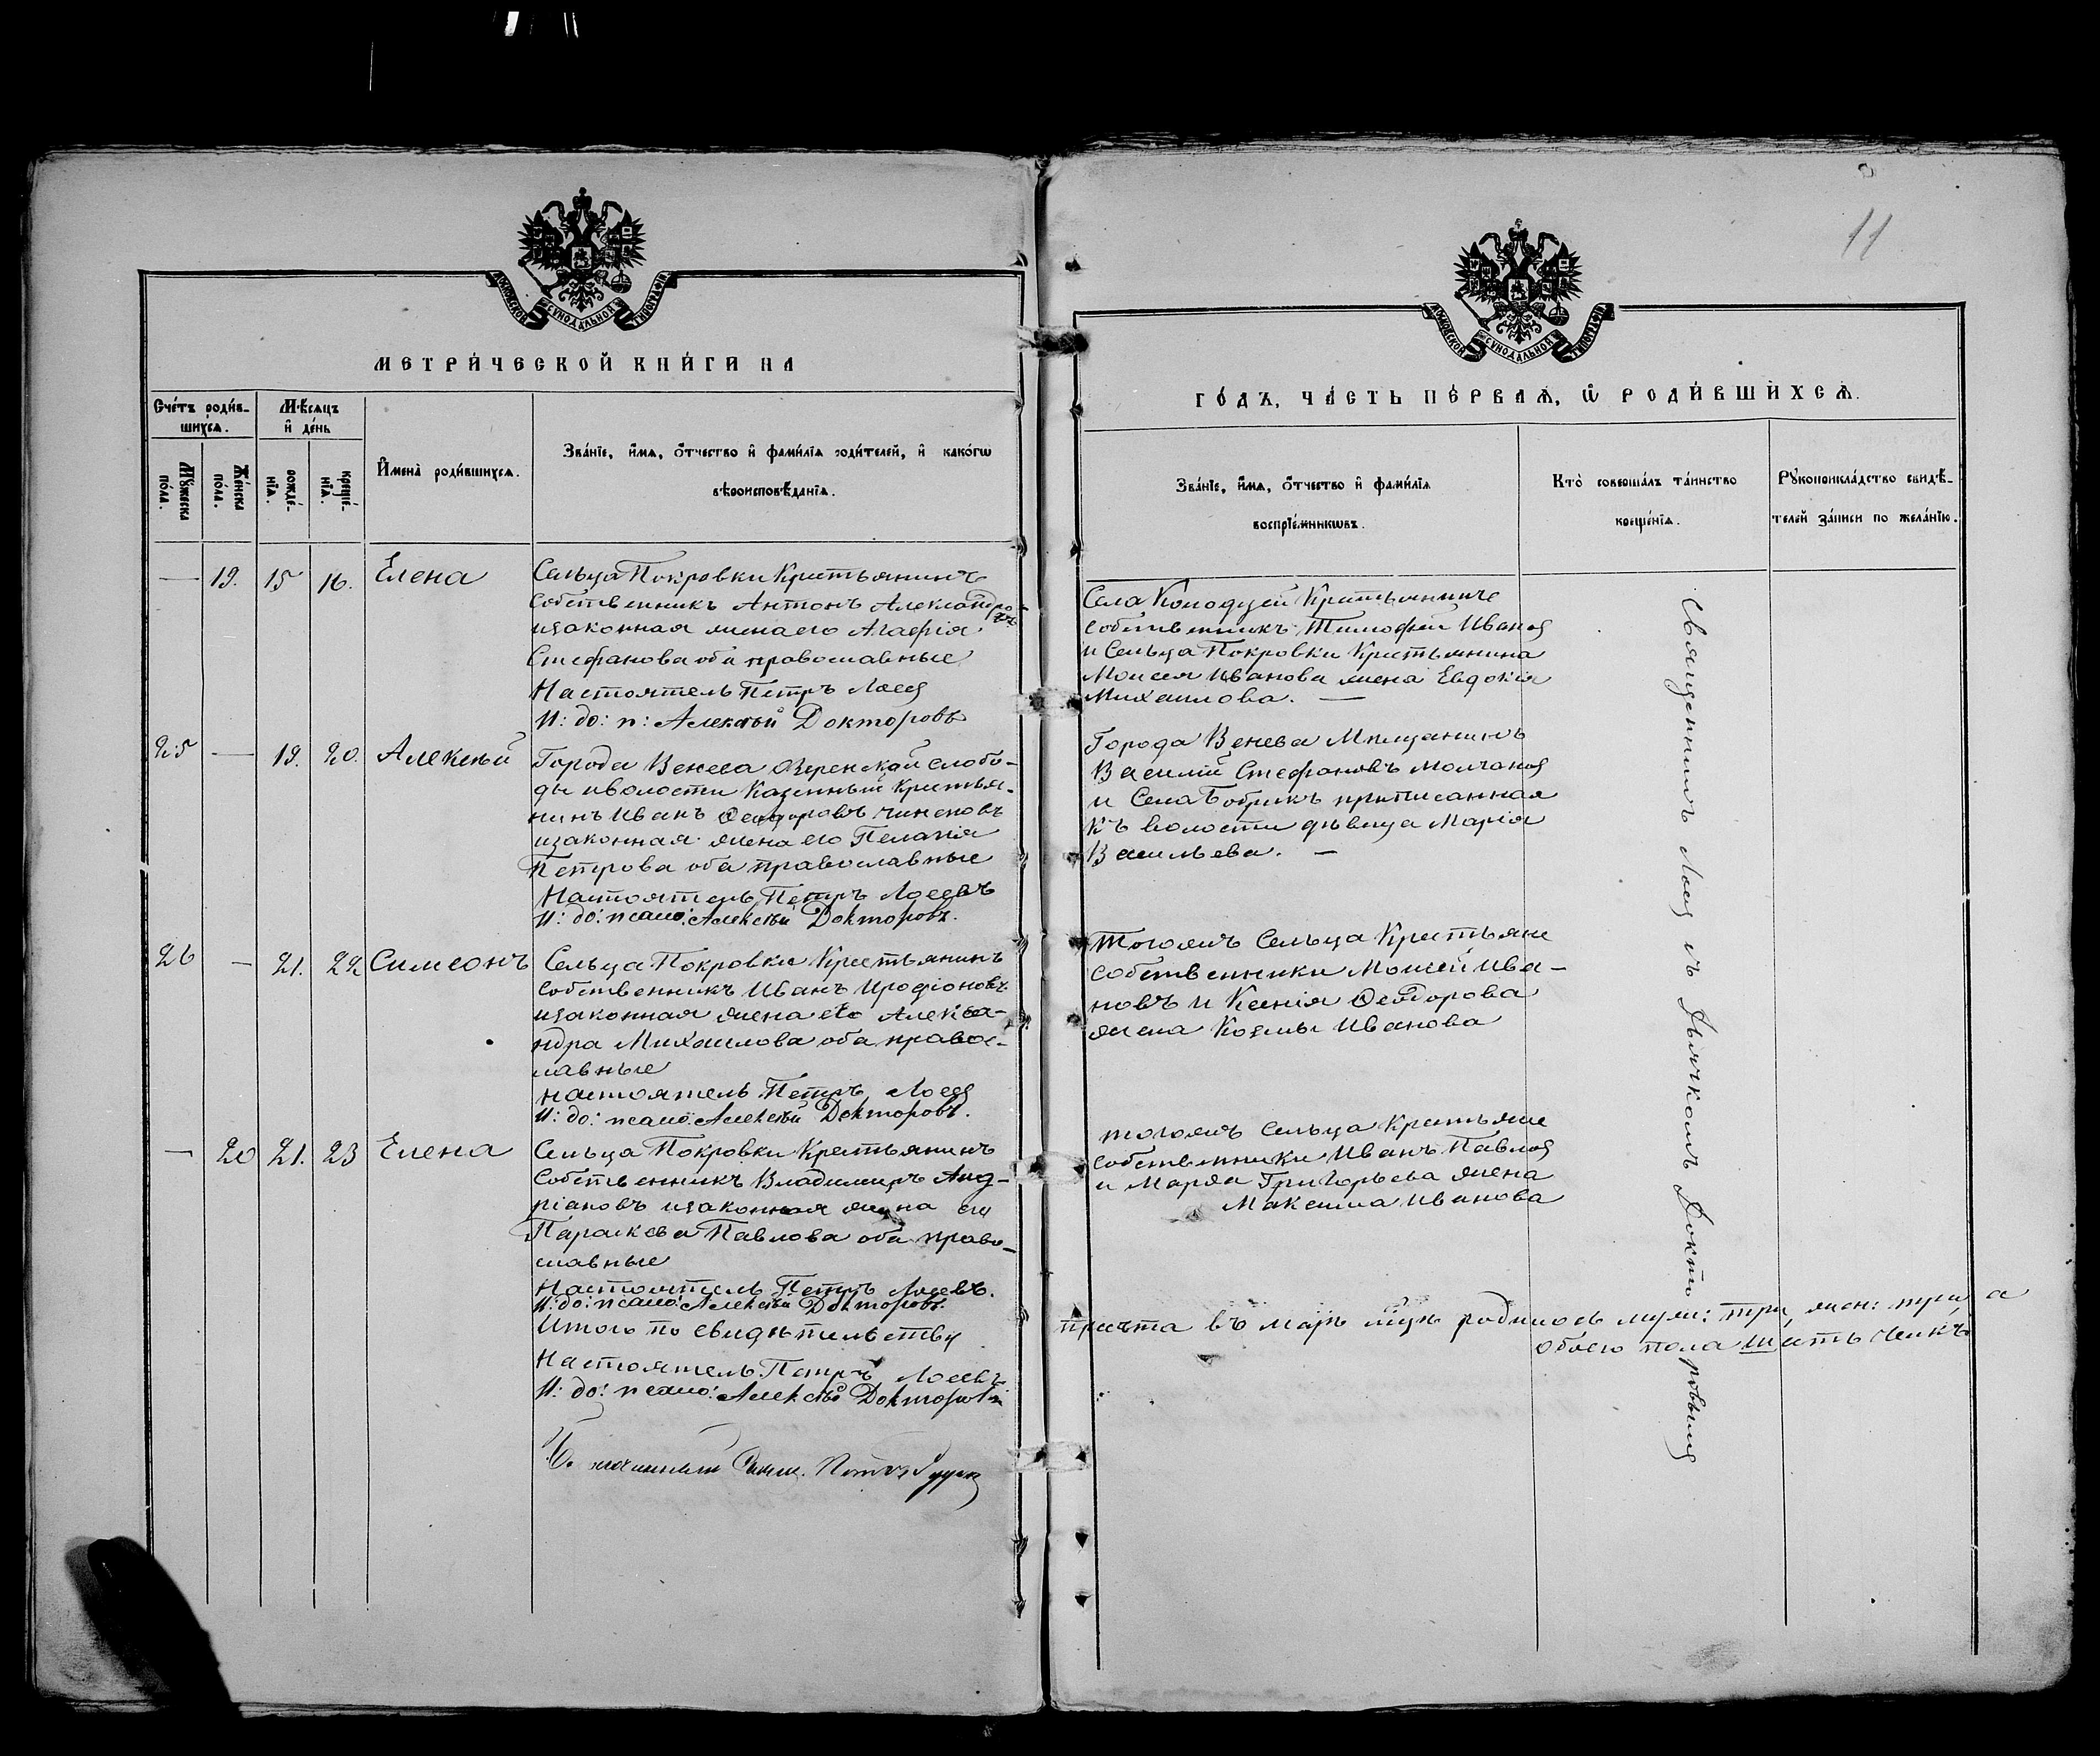 МОСКОВСКОЙ СУНОДАЛЬНОЙ ТИПОГРАФІИ
МЕТРИ́ЧЕСКОЙ КНИ́ГИ НА
Сче́тъ роди́в-
шихсѧ.
Мꙋ́жеска по́ла.
Же́нска по́ла.
Мѣ́сяцъ
и҆ де́нь
рожде́-
нїѧ.
креще́-
нїѧ.
И҆мена̀ роди́вшихсѧ.
Зва́нїе, и҆́мѧ, ѻ҆́тчество и҆ фами́лїѧ роди́телей, и҆ како́гѡ
вѣроисповѣ́данїѧ.
— 19. 15 16. Елена
Сельца Покровки Крестьянинъ
собственникъ Антонъ Александро-
въ
изаконная жена его Агафія
Стефанова оба православные
Настоятель Петръ Лосев
И: до: п: Алексѣй Докторовъ
25 — 19. 20. Алексѣй
Города Венева Озеренской слобо-
ды иволости Казенный крестья-
нинъ Иванъ Ѳеодоровъ
изаконная жена его Пелагія
Петрова оба православные
Настоятель Петръ Лосевъ
И: до: псало: Алексѣй Докторовъ.
26 — 21. 22 Симеонъ
Сельца Покровки Крестьянинъ
собственникъ Иванъ Иродіоновъ
изаконная жена его Алекса-
ндра Михаилова оба правос-
лавные
настоятель Петръ Лосев
И: до: псало: Алексѣй Докторовъ.
— 20 21. 23 Елена
Сельца Покровки Крестьянинъ
Собственникъ Владимиръ Анд-
ріановъ изаконная жена его
Параскева Павлова оба право-
славные
Настоятель Петръ Лосевъ.
И: до: псало: Алексѣй Докторовъ.
Итого по свидѣтельству
Настоятель Петръ Лосевъ
И: до: псало: Алексѣй Докторовъ
11
МОСКОВСКОЙ СУНОДАЛЬНОЙ ТИПОГРАФІИ
ГО́ДЪ, ЧА́СТЬ ПЕ́РВАѦ, Ѡ҆ РОДИ́ВШИХСѦ.
Зва́нїе, и҆́мѧ, ѻ҆́тчество и҆ фами́лїѧ
воспрїе́мникѡвъ.
Кто̀ соверша́лъ та́инство
креще́нїѧ.
Рꙋкоприкла́дство свидѣ́-
телей за́писи по жела́нїю.
Села Колодезей Крестьянине
собственникъ Тимофей Иванов
и Сельца Покровки Крестьянина
Моисея Иванова жена Евдокія
Михаилова. —
Города Венева Мѣщанинъ
Василій Стефановъ Молчанов
и Села Бобрикъ приписанная
къ волости дѣвица Марія
Васильева. —
тогожъ Сельца Крестьяне
собственники Моисей Ива-
новъ и Ксенія Ѳеодорова
жена Козмы Иванова
тогожъ сельца Крестьяне
собственники Иванъ Павлов
и Марѳа Григорьева жена
Максима Иванова
Священникъ Лосев съ Дьячкомъ Докторовымъ
причта въ мартѣ мцѣ родилось муж: три, жен: три, а
обоего пола шесть челкъ